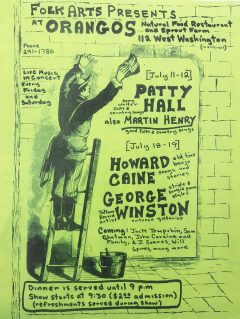 FOLK ARTS PRESENTS
AT ORANGOS
Natural Food Restaurant
and Sprout Farm
112 West Washington
Phone
291-1786
LIVE MUSIC
IN CONCERT
Every
Friday
and
Saturday
[July 11-12]
PATTY
HALL
also MARTIN HENRY
good folk & country songs
[July 18-19]
HOWARD
CAINE
old time
banjo
songs and
stories
GEORGE
WINSTON
stride &
piano
guitar
artist
Coming: Jack Tempchin, Sam
Chatmon, John Corzine and
Family, A.J. Soares, Will
Spires, many more
Dinner is served until 9 pm
Show starts at 9:30 ($2.00 admission)
(refreshments served during show)